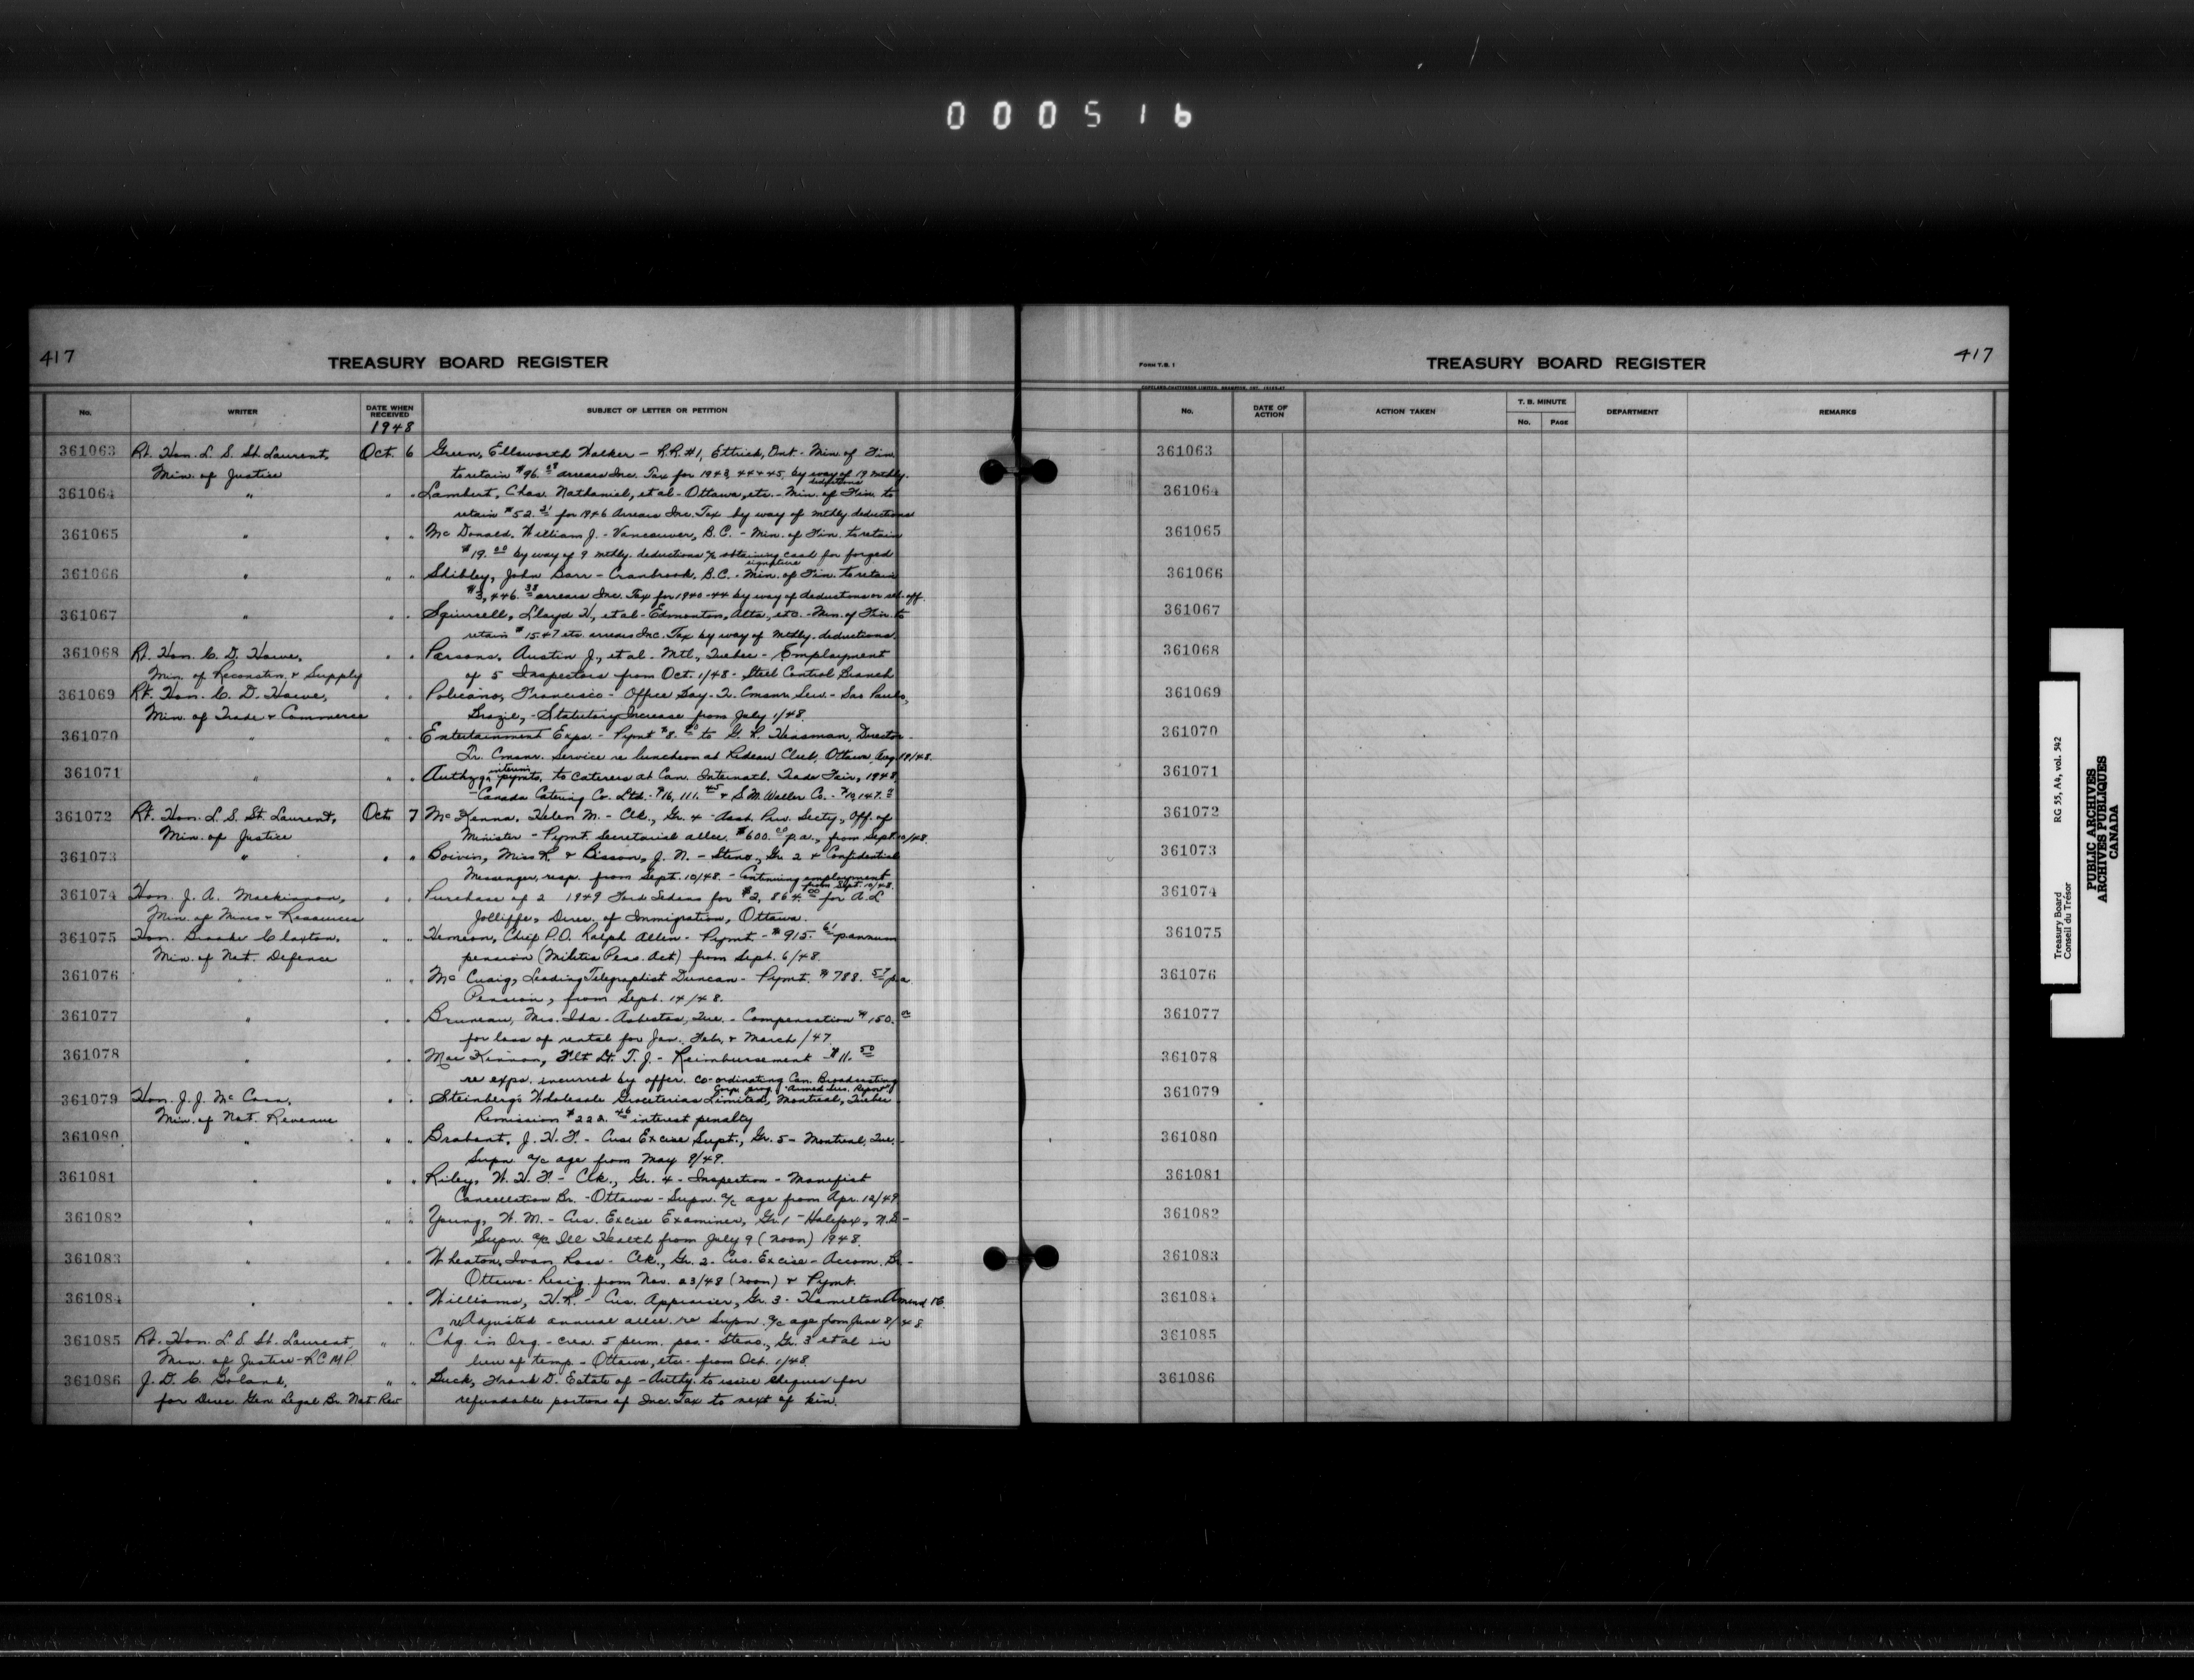 000516
417
TREASURY BOARD REGISTER
No. WRITER DATE WHEN RECEIVED SUBJECT OF LETTER OR PETITION
1948
361063 Rt. Hon. L. S. St. Laurent, Oct. 6 Green, Ellsworth Walker - R.R. #1, Ettrick, Ont - Min. of Fin.
Min. of Justice to retain $96. arrears Inc. Tax for 1943, 44 & 45, by way of 19 mthly. deductions
361064 " " " Lambert, Chas. Nathaniel, et al - Ottawa, etc. - Min. of Fin. to
retain $52.21 for 1946 Arrears Inc. Tax by way of mthly deductions
361065 " " " McDonald, William J. - Vancouver, B.C. - Min. of Fin. to retain
$19.00 by way of 9 mthly. deductions a/c obtaining cash for forged signature
361066 " " " Shibley, John Barr - Cranbrook, B.C. - Min. of Fin. to retain
$3,446.38 arrears Inc. Tax for 1940-44 by way of deductions or set-off.
361067 " " " Lloyd H., et al - Edmonton, Alta, etc. - Min. of Fin. to
retain $15.47 etc. arrears Inc. Tax by way of Mthly. deductions.
361068 Rt. Hon. C. D. Howe, " " Parsons, Austin J., et al - Mtl., Quebec - Employment
Min. of Reconstn. & Supply of 5 Inspectors from Oct. 1/48 - Steel Control Branch
361069 Rt. Hon. C. D. Howe, " " Policano, Francisco - Office Boy - Tr. Cmsnr. Serv. - Sao Paulo,
Min. of Trade & Commerce Brazil, - Statutory Increase from July 1/48.
361070 " " " Entertainment Exps. - Pymt $8. to G. R. Heasman, Director -
Tr. Cmsnr. Service re luncheon at Rideau Club, Ottawa, Aug. 19/48.
361071 " " " Authzg. interim pymts. to Caterers at Can. Internatl. Trade Fair, 1948,
- Canada Catering Co. Ltd. - $16,111.45 & S. M. Waller Co. -
361072 Rt. Hon. L. S. St. Laurent, Oct. 7 McKenna, Helen M. - Clk., Gr. 4 - Asst. Priv. Secty., Off. of
Min. of Justice Minister - Pymt. Secretarial allce. $600.00 p.a., from Sept. 10/48.
361073 " " " Boivin, Miss R. & Bisson, J. N. - Steno., Gr. 2 & Confidential
Messenger, resp. from Sept. 10/48. - Continuing employment from Sept. 10/48.
361074 Hon. J. A. Mackinnon, " " Purchase of 2 1949 Ford Sedans for $2,864.00 for A. L.
Min. of Mines & Resources Jolliffe, Direc. of Immigration, Ottawa.
361075 Hon. Brooke Claxton, " " Chief P.O. Ralph Allen - Pymt. - $915.61 p. annum
Min. of Nat. Defence pension (Militia Pens. Act) from Sept. 6/48.
361076 " " " McCuaig, Leading Telegraphist Duncan - Pymt. $788.57 p.a.
Pension, from Sept. 14/48.
361077 " " " Bruneau, Mrs. Ida - Asbestos, Que. - Compensation $150.00
for loss of rental for Jan., Feb. & March /47.
361078 " " " MacKinnon, Flt. Lt. T. J. - Reimbursement $11.50
re exps. incurred by offcr. co-ordinating Can. Broadcasting Corpn. prog. "Armed Ser. Report"
361079 Hon. J. J. McCann, " " Steinberg's Wholesale Groceterias Limited, Montreal, Quebec
Min. of Nat. Revenue Remission $222.46 interest penalty
361080 " " " Brabant, J. H. F. - Cus. Excise Supt., Gr. 5 - Montreal, Que. -
Supn. a/c age from May 9/49.
361081 " " " Riley, W. H. F. - Clk., Gr. 4 - Inspection - Manifest
Cancellation Br. - Ottawa - Supn. a/c age from Apr. 12/49
361082 " " " Young, W. M. - Cus. Excise Examiner, Gr. 1 - Halifax, N.S. -
Supn. a/c Ill Health from July 9 (noon) 1948.
361083 " " " Wheaton, Ivan Ross - Clk., Gr. 2 - Cus. Excise - Accom. Br. -
Ottawa - Resig. from Nov. 23/48 (noon) & Pymt.
361084 " " " Williams, H. R. - Cus. Appraiser, Gr. 3 - Hamilton Amend TB.
re Adjusted annual allce. re Supn. a/c age from June 8/48.
361085 Rt. Hon. L. S. St. Laurent, " " Chg. in Org. - crea. 5 perm. pos. - Steno., Gr. 3 et al in
Min. of Justice - RCMP. lieu of temp. - Ottawa, etc. from Oct. 1/48.
361086 J. D. C. Boland, " " Luck, Frank D. Estate of - Authy. to issue cheques for
for Direc. Gen. Legal Br. Nat. Rev. refundable portions of Inc. Tax to next of kin.
FORM T.B. 1
TREASURY BOARD REGISTER
417
No. DATE OF ACTION ACTION TAKEN T. B. MINUTE No. PAGE DEPARTMENT REMARKS
361063
361064
361065
361066
361067
361068
361069
361070
361071
361072
361073
361074
361075
361076
361077
361078
361079
361080
361081
361082
361083
361084
361085
361086
Treasury Board RG 55, A4, vol. 542
Conseil du Trésor
PUBLIC ARCHIVES
ARCHIVES PUBLIQUES
CANADA